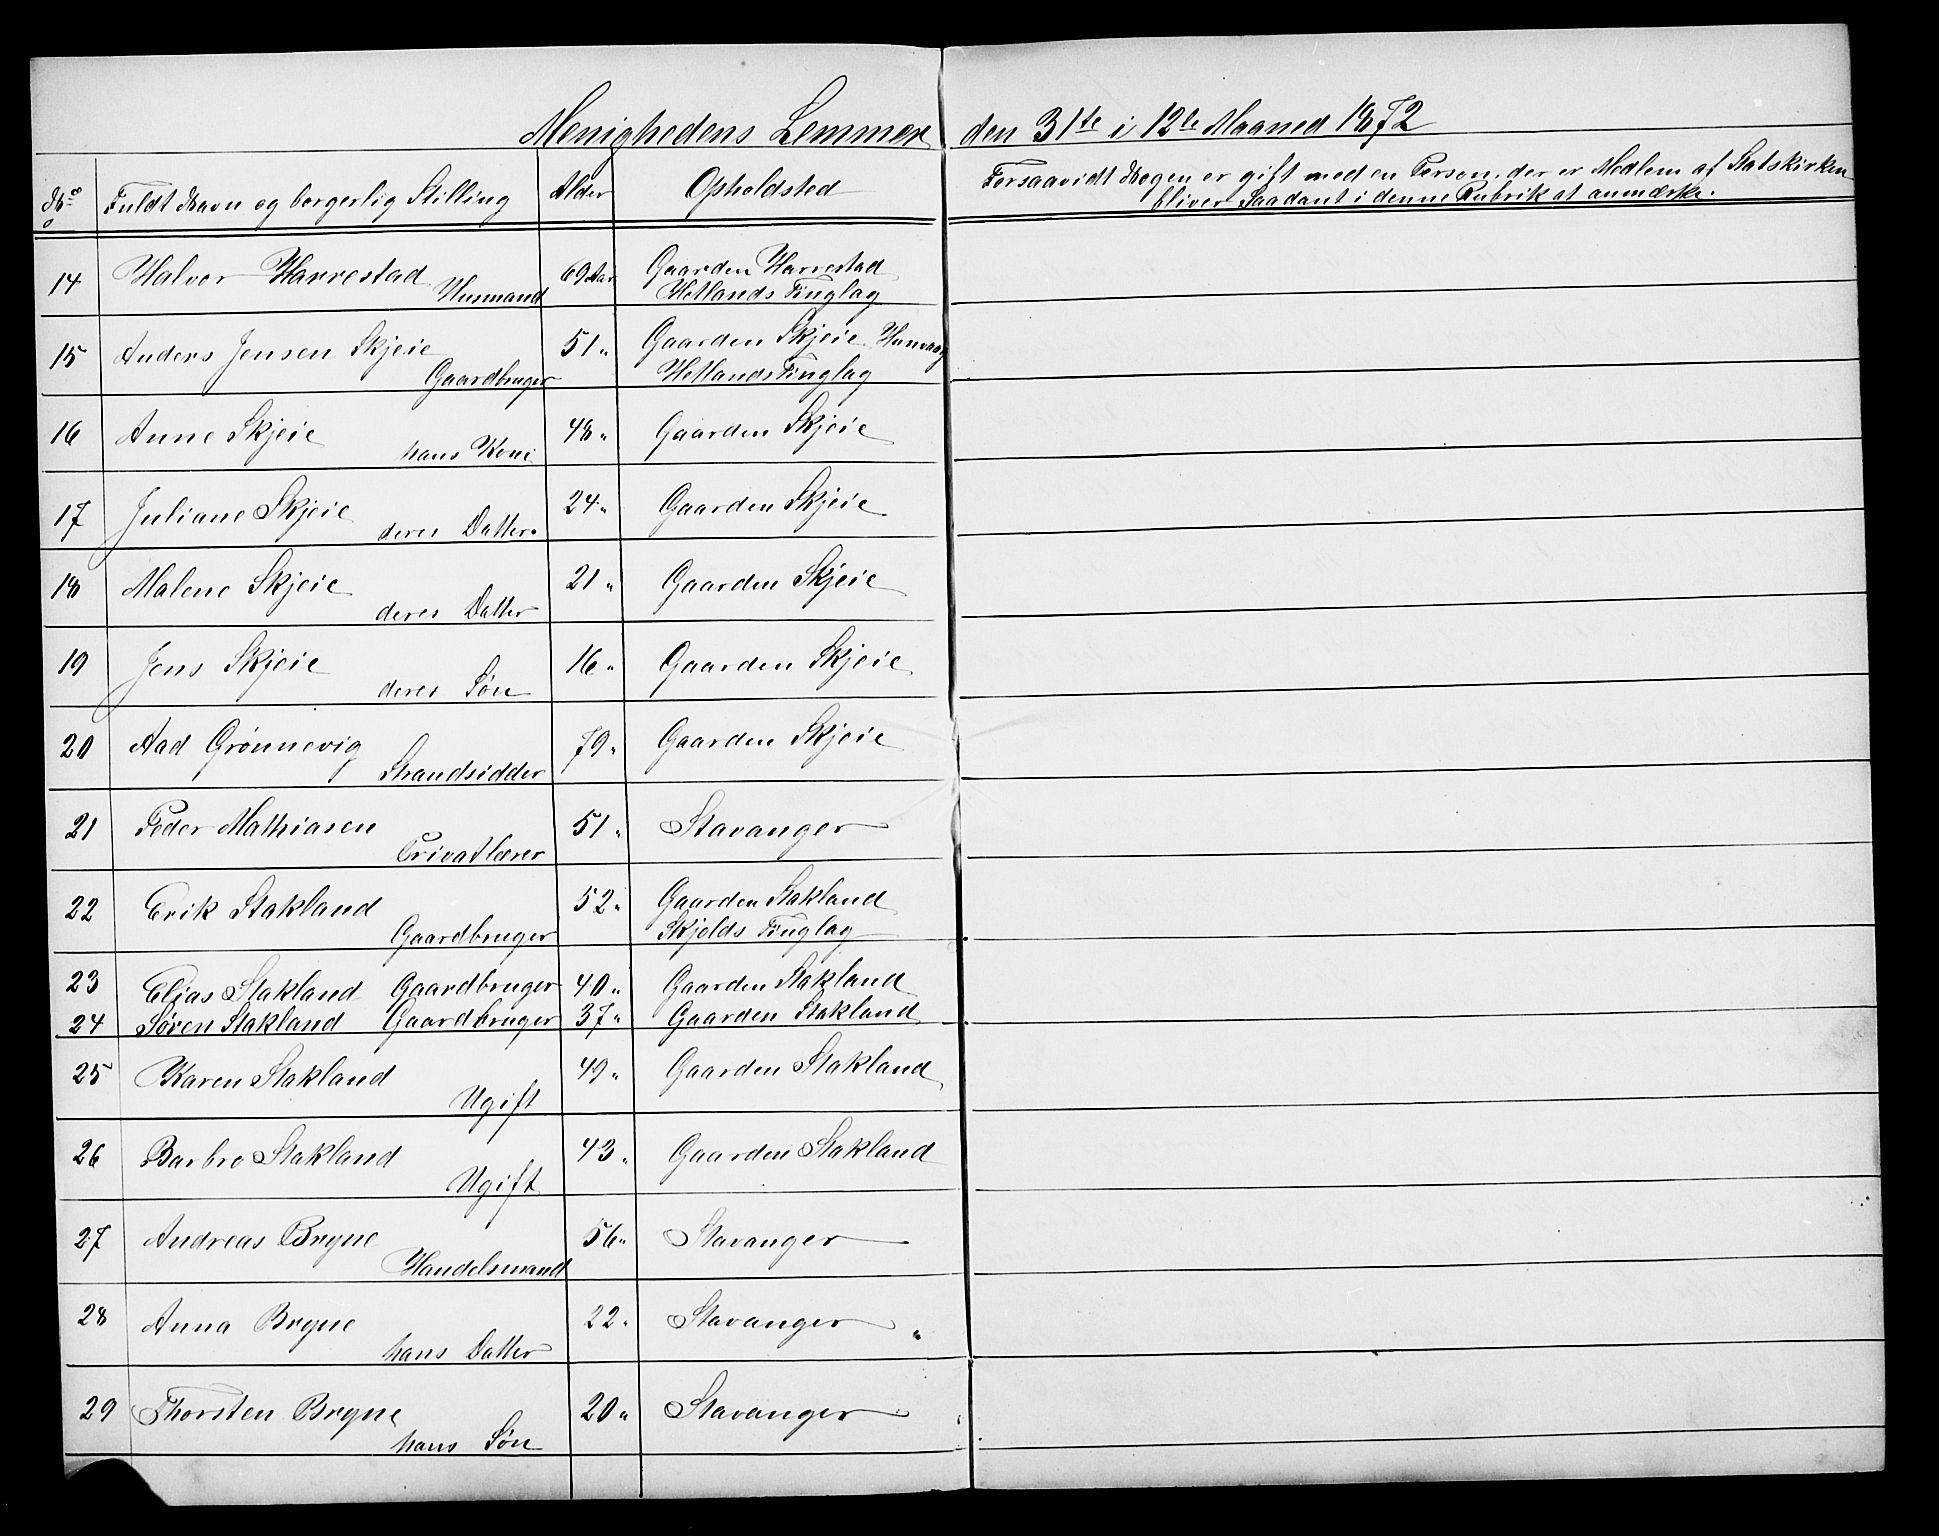 Menighedens Lemmer den 31te i 12te Maaned 1872
No Fuldt Navn og borgerlig Stilling Alder Opholdsted Forsaavidt Nogen er gift med en Person, der er Medlem af Statskirken
bliver Saadant i denne Rubrik at anmærke.
14 Halvor Harrestad Husmand 69 Aar Gaarden Harrestad
Hetlands Tinglag
15 Anders Jensen Skjeie Gaardbruger 51 " Gaarden Skjeie Hunvaag
Hetlands Tinglag
16 Anne Skjeie hans Kone 48 " Gaarden Skjeie
17 Juliane Skjeie deres Datter. 24 " Gaarden Skjeie
18 Malene Skjeie deres Datter 21 " Gaarden Skjeie
19 Jens Skjeie deres Søn 16 " Gaarden Skjeie
20 Aad Grønnevig Strandsidder 79 " Gaarden Skjeie
21 Peder Mathiasen Privatlærer 51 " Stavanger
22 Erik Stakland Gaardbruger 52 " Gaarden Stakland
Skjolds Tinglag
23 Elias Stakland Gaardbruger 40 " Gaarden Stakland
24 Søren Stakland Gaardbruger 37 " Gaarden Stakland
25 Karen Stakland Ugift 49 " Gaarden Stakland
26 Barbro Stakland Ugift 43 " Gaarden Stakland
27 Andreas Bryne Handelsmand 56 " Stavanger
28 Anna Bryne hans Datter 22 " Stavanger "
29 Thorsten Bryne hans Søn 20 " Stavanger